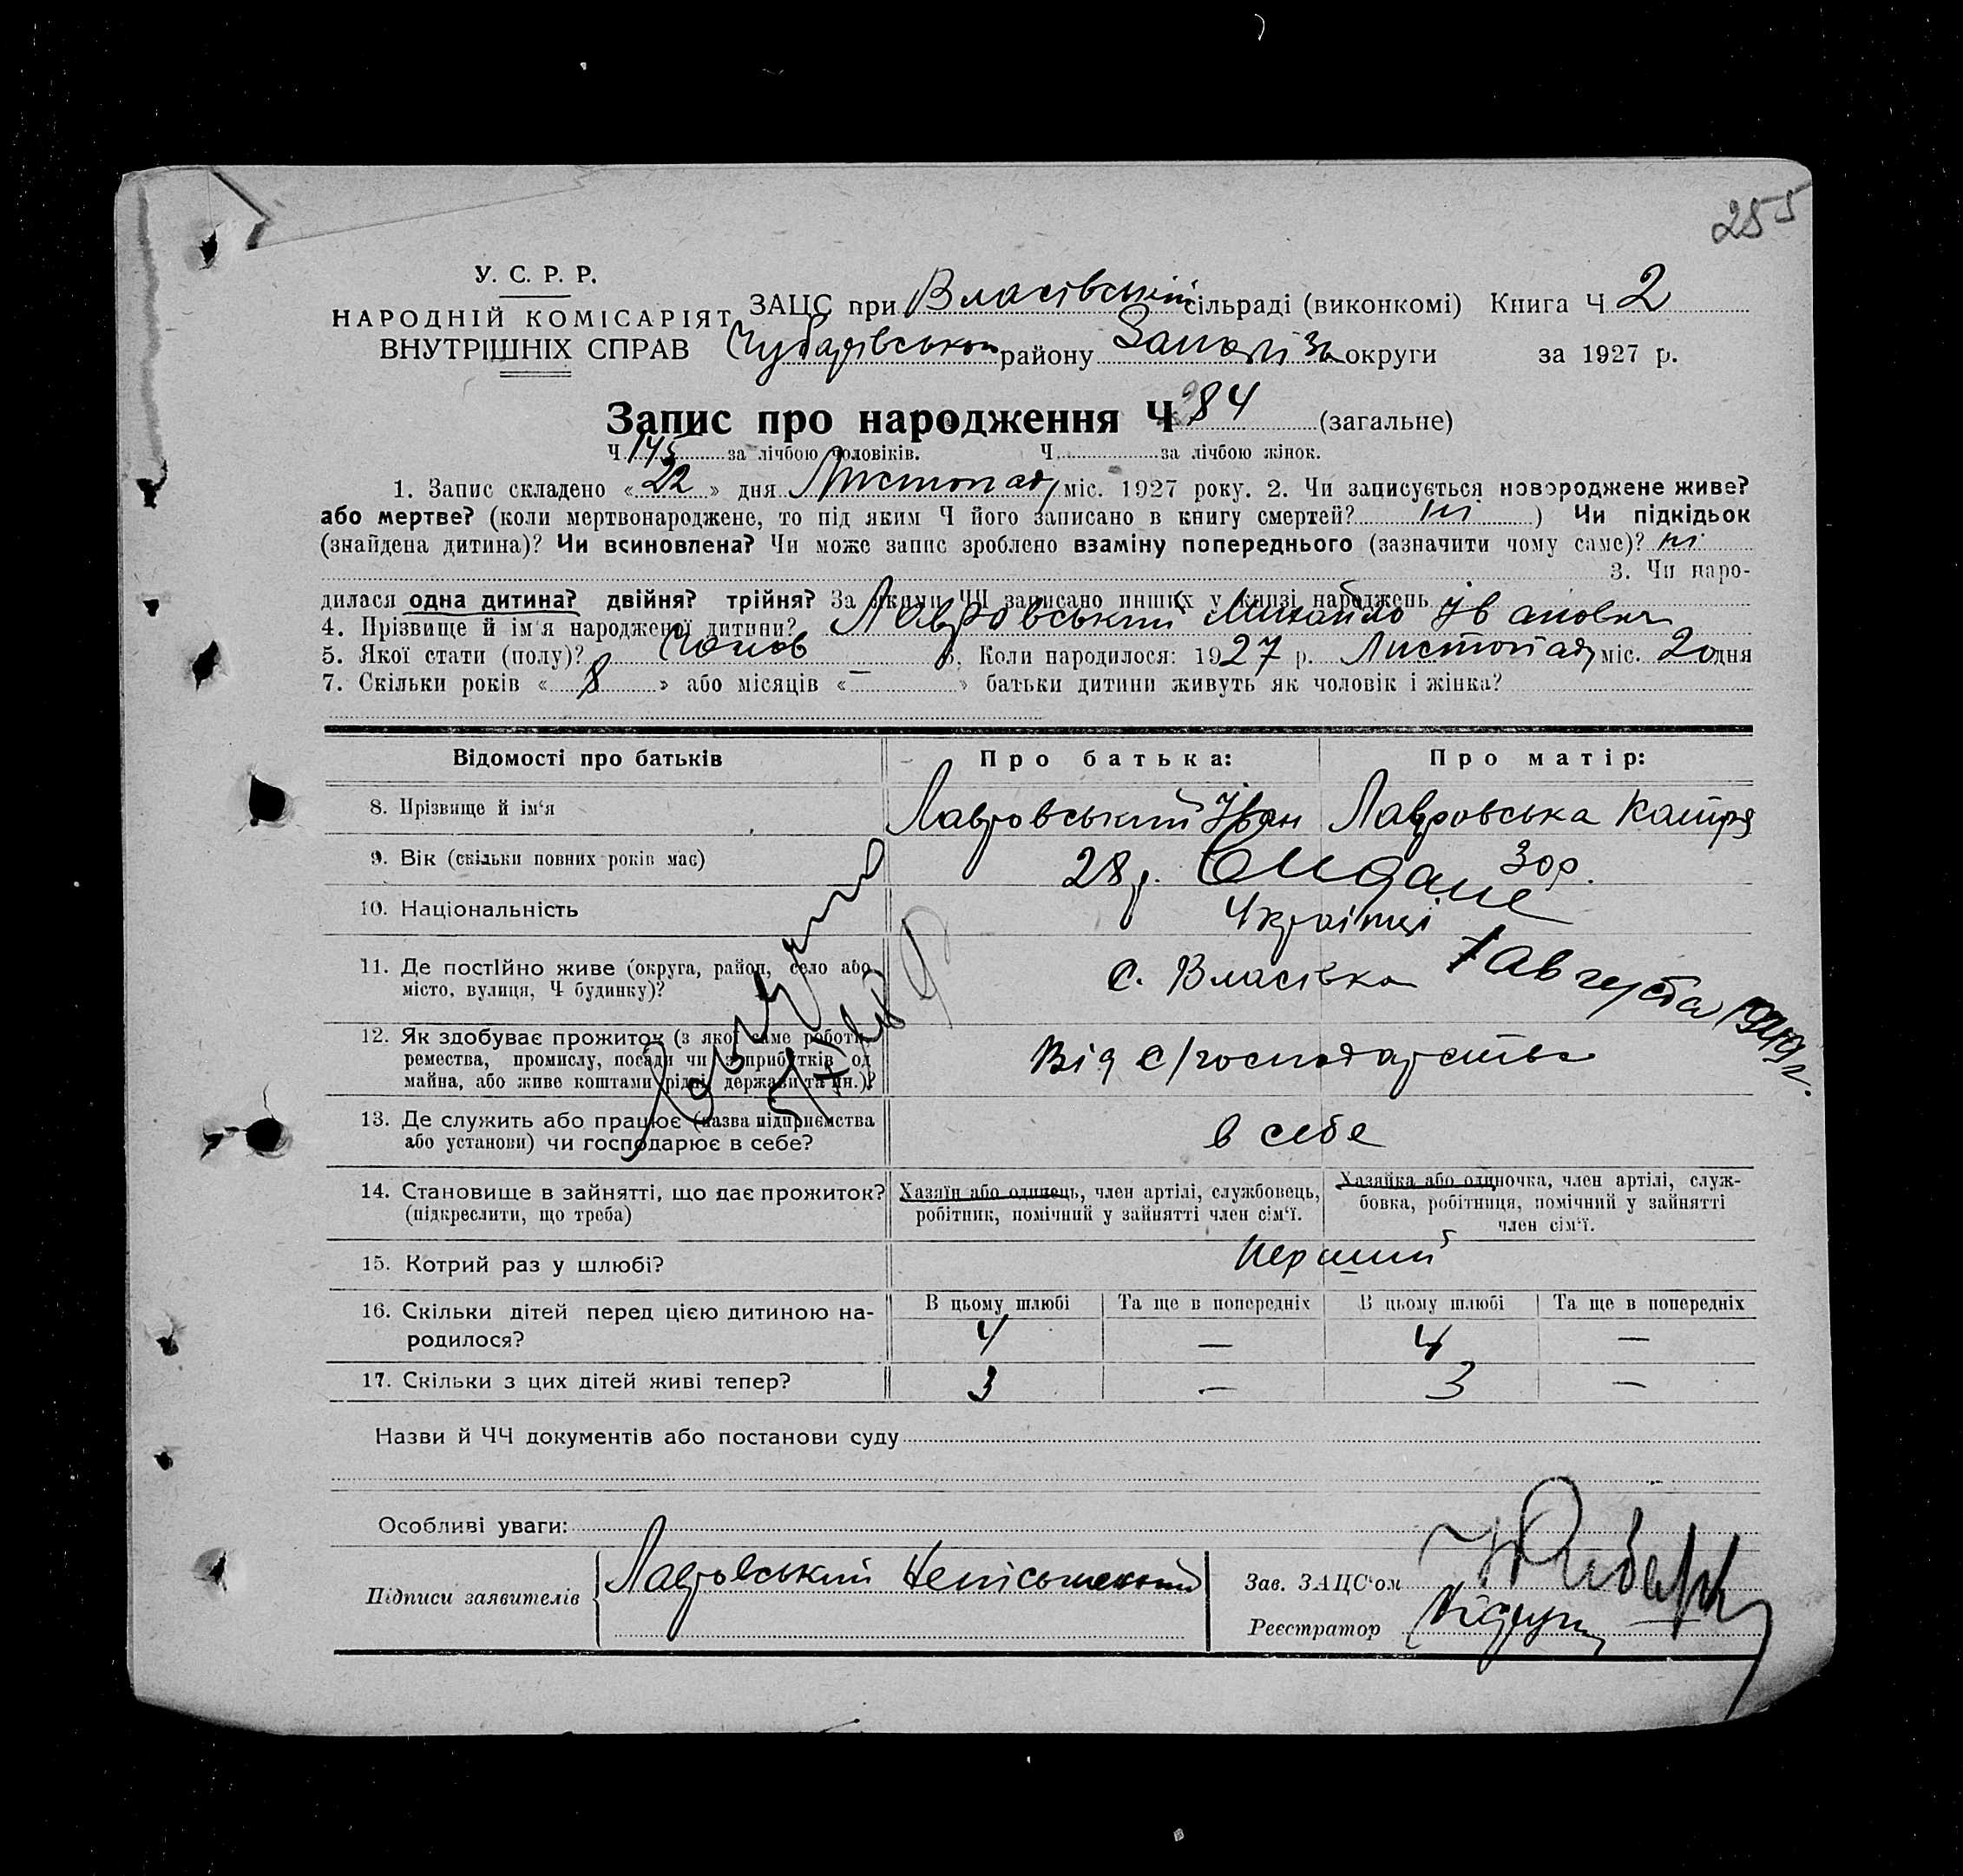 255
У. С. Р. Р.
НАРОДНІЙ КОМІСАРІЯТ
ВНУТРІШНІХ СПРАВ
ЗАЦС при Власівській сільраді (виконкомі) Книга Ч 2
Чубарівського району Запоріз округи за 1927 р.
Запис про народження Ч 284 (загальне)
Ч. 145 за лічбою чоловіків. Ч. за лічбою жінок.
1. Запис складено «22» дня Листопаду міс. 1927 року. 2. Чи записується новороджене живе?
або мертве? (коли мертвонароджене, то під яким Ч його записано в книгу смертей? ні ) Чи підкідьок
(знайдена дитина)? Чи всиновлена? Чи може запис зроблено взаміну попереднього (зазначити чому саме)? ні
3. Чи наро-
дилася одна дитина? двійня? трійня? За якими ЧЧ записано инших у книзі народжень
4. Прізвище й ім'я народженої дитини? Лавровський Михайло Іванович
5. Якої стати (полу)? 6. Коли народилося: 1927 р. Листопаду міс. 20 дня
7. Скільки років «8» або місяців «—» батьки дитини живуть як чоловік і жінка?
Відомості про батьків Про батька: Про матір:
8. Прізвище й ім'я Лавровський Іван Лавровська Катря
9. Вік (скільки повних років має) 28 р. 30 р.
10. Національність Українці
11. Де постійно живе (округа, район, село або
місто, вулиця, Ч будинку)? с. Власівка
7 августа 1949 г.
12. Як здобуває прожиток (з якої саме роботи,
ремества, промислу, посади чи з прибутків од
майна, або живе коштами рідні, держави та ин.)? Від с/господарства
13. Де служить або працює (назва підприємства
або установи) чи господарює в себе? в себе
14. Становище в зайнятті, що дає прожиток?
(підкреслити, що треба)
Хазяїн або одинець, член артілі, службовець,
робітник, помічний у зайнятті член сім'ї.
Хазяйка або одиночка, член артілі, служ-
бовка, робітниця, помічний у зайнятті
член сім'ї.
15. Котрий раз у шлюбі? Перший
16. Скільки дітей перед цією дитиною на-
родилося?
В цьому шлюбі Та ще в попередніх В цьому шлюбі Та ще в попередніх
4 — 4 —
17. Скільки з цих дітей живі тепер? 3 — 3 —
Назви й ЧЧ документів або постанови суду
Особливі уваги:
Підписи заявителів Лавровський Неписьменний
Зав. ЗАЦС'ом
Реєстратор